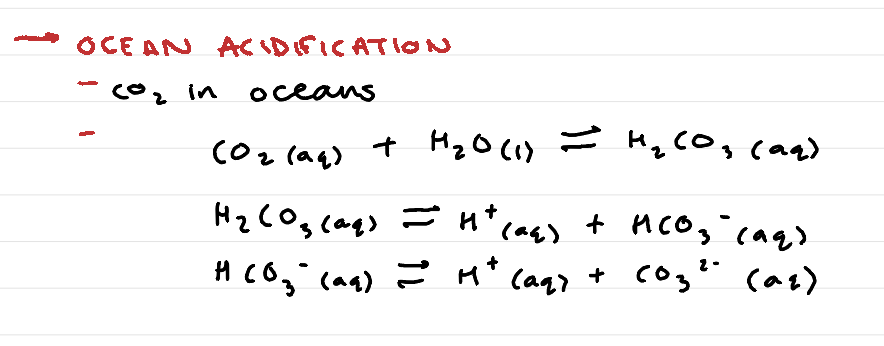 → OCEAN ACIDIFICATION
- CO₂ in oceans
-
CO₂ (aq) + H₂O (l) ⇌ H₂CO₃ (aq)
H₂CO₃ (aq) ⇌ H⁺ (aq) + HCO₃⁻ (aq)
HCO₃⁻ (aq) ⇌ H⁺ (aq) + CO₃²⁻ (aq)